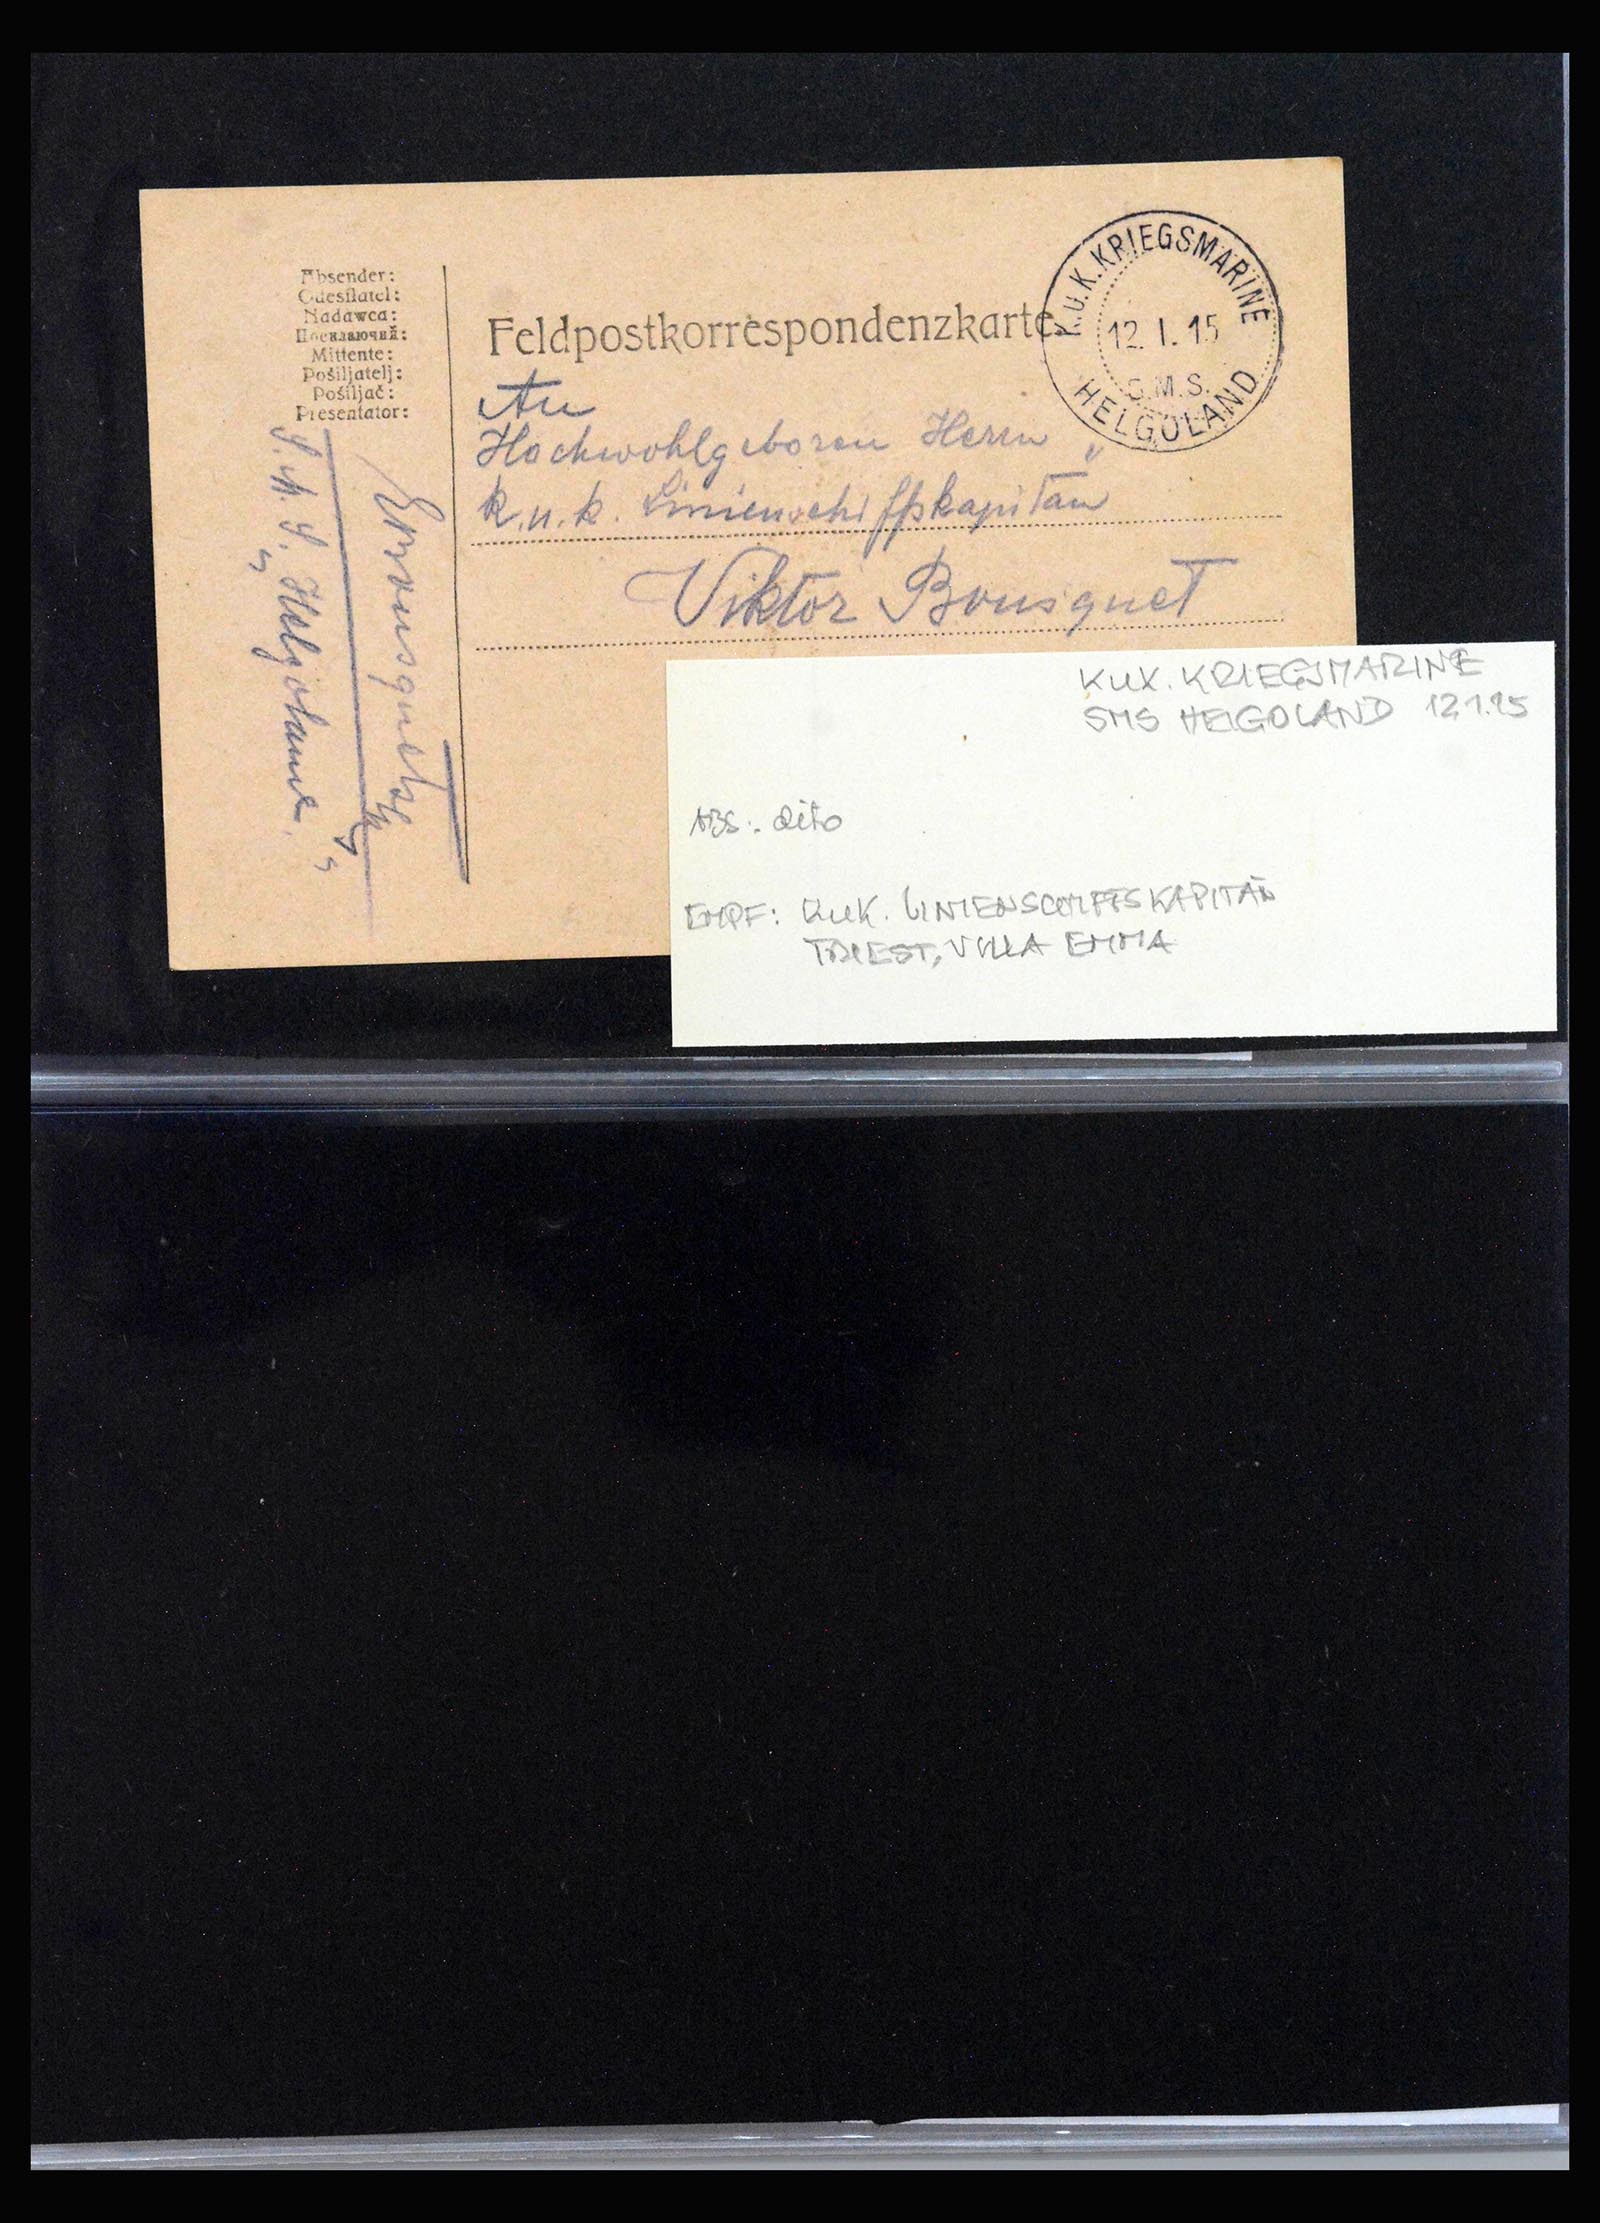 Absender:
Odesílatel:
Nadawca:
Посилаючий:
Mittente:
Pošiljatelj:
Pošiljač:
Presentator:
Feldpostkorrespondenzkarte
K.U.K. KRIEGSMARINE
12. I. 15
S.M.S.
HELGOLAND
An
Hochwohlgeboren Herrn
k. u. k. Linienschiffskapitän
Viktor Bousquet
S. M. S. "Helgoland"
K.u.K. KRIEGSMARINE
SMS HELGOLAND 12.1.15
ABS.: dito
EMPF: K.u.K. LINIENSCHIFFSKAPITÄN
TRIEST, VILLA EMMA